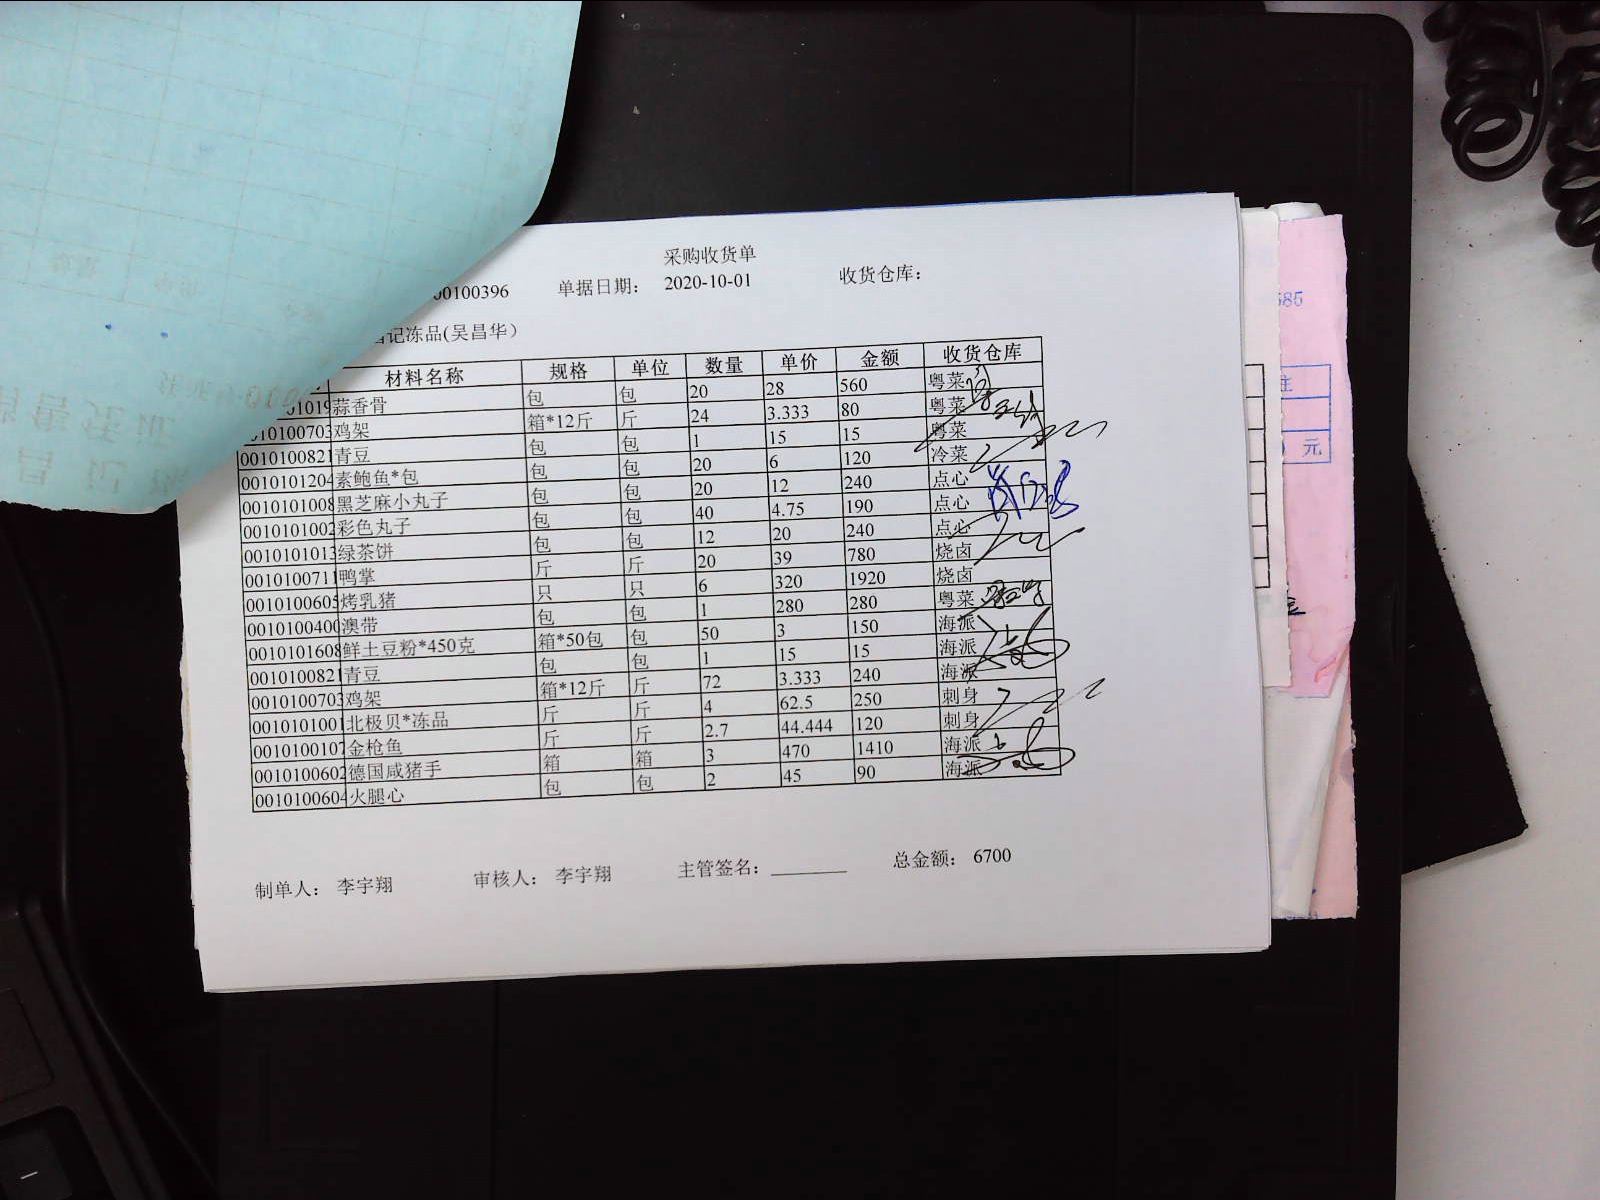 采购收货单
00100396 单据日期： 2020-10-01 收货仓库：
记冻品(吴昌华）
材料名称 规格 单位 数量 单价 金额 收货仓库
01019 蒜香骨 包 包 20 28 560 粤菜
10100703 鸡架 箱*12斤 斤 24 3.333 80 粤菜
0010100821 青豆 包 包 1 15 15 粤菜
0010101204 素鲍鱼*包 包 包 20 6 120 冷菜
0010101008 黑芝麻小丸子 包 包 20 12 240 点心
0010101002 彩色丸子 包 包 40 4.75 190 点心
0010101013 绿茶饼 包 包 12 20 240 点心
0010100711 鸭掌 斤 斤 20 39 780 烧卤
0010100605 烤乳猪 只 只 6 320 1920 烧卤
0010100400 澳带 包 包 1 280 280 粤菜
0010101608 鲜土豆粉*450克 箱*50包 包 50 3 150 海派
0010100821 青豆 包 包 1 15 15 海派
0010100703 鸡架 箱*12斤 斤 72 3.333 240 海派
0010101001 北极贝*冻品 斤 斤 4 62.5 250 刺身
0010100107 金枪鱼 斤 斤 2.7 44.444 120 刺身
0010100602 德国咸猪手 箱 箱 3 470 1410 海派
0010100604 火腿心 包 包 2 45 90 海派
制单人： 李宇翔 审核人： 李宇翔 主管签名： 总金额： 6700
585
元